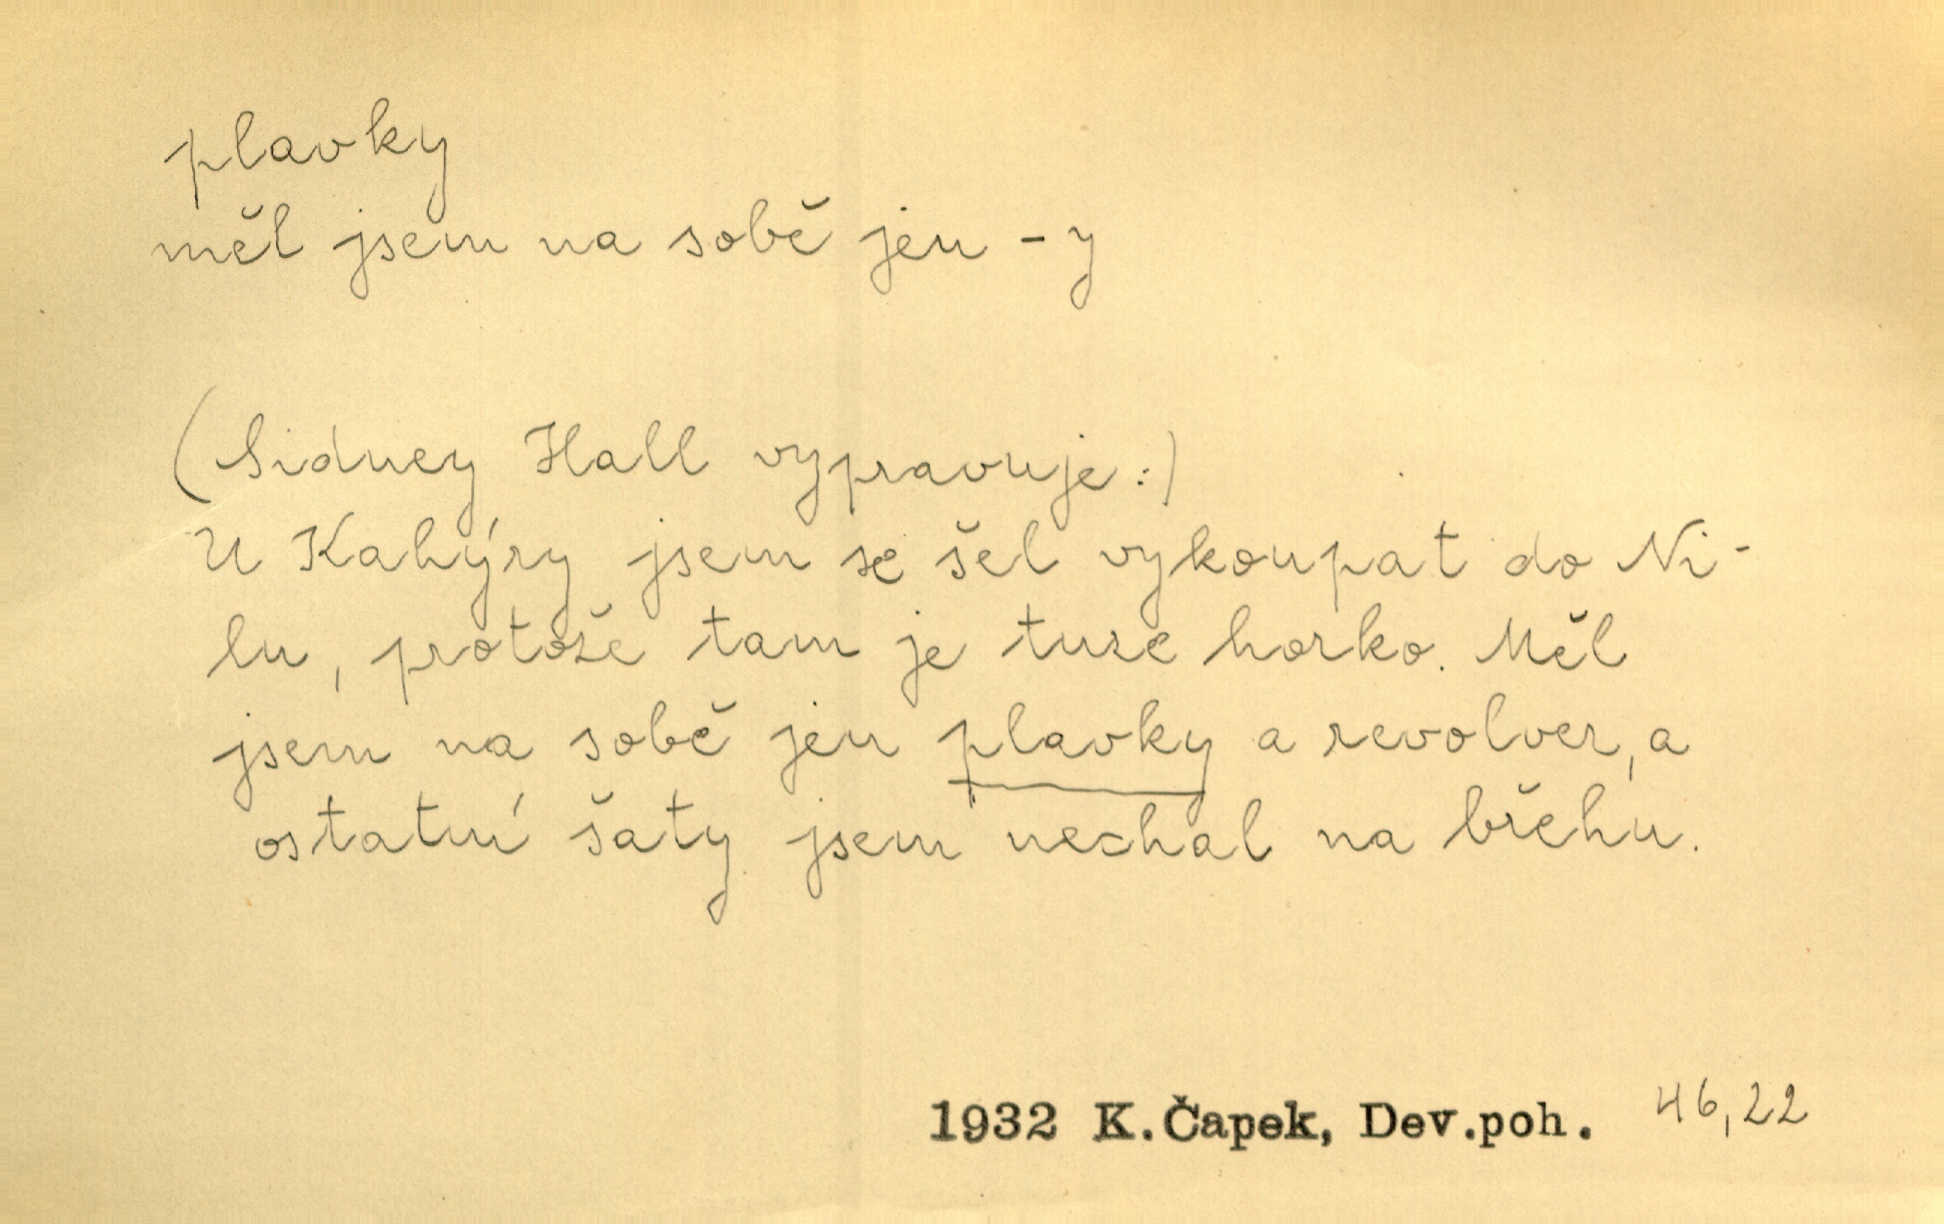 plavky
měl jsem na sobě jen -y
(Sidney Hall vypravuje:)
U Kahýry jsem se šel vykoupat do Ni-
lu, protože tam je tuze horko. Měl
jsem na sobě jen plavky a revolver, a
ostatní šaty jsem nechal na břehu.
1932 K.Čapek, Dev.poh. 46,22